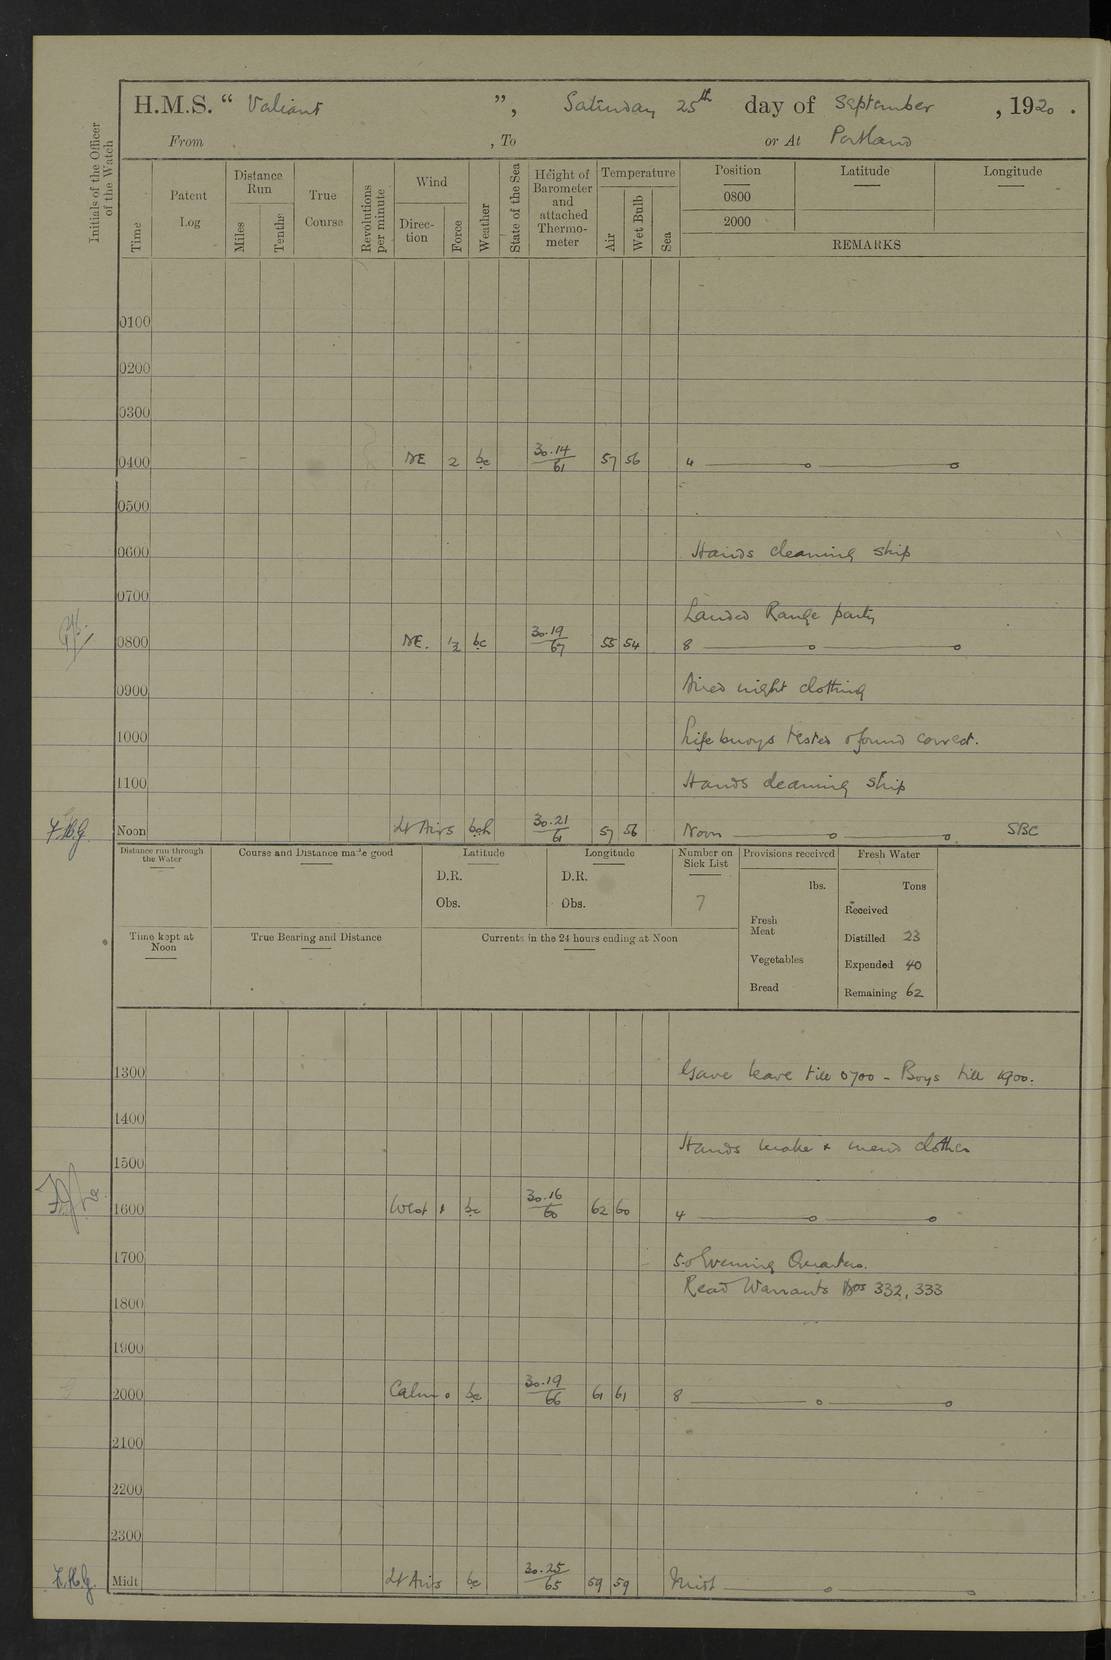 H.M.S. “ Valiant ”, Saturday 25th day of September , 1920 .
From , To or At Portland
Initials of the Officer of the Watch
Time
Patent Log
Distance Run
Miles
Tenths
True Course
Revolutions per minute
Wind
Direc-tion
Force
Weather
State of the Sea
Height of Barometer and attached Thermo-meter
Temperature
Air
Wet Bulb
Sea
Position Latitude Longitude
0800
2000
REMARKS
0100
0200
0300
0400 NE 2 bc 30.14/61 57 56 4
0500
0600 Hands cleaning ship
0700 Landed Range party
0800 NE. 1/2 bc 30.19/67 55 54 8
0900 Aired night clothing
1000 Life buoys tested & found correct.
1100 Hands cleaning ship
F.H.G. Noon Lt Airs bch 30.21/61 57 56 Noon SBC
Distance run through the Water
Course and Distance made good
Latitude
D.R.
Obs.
Longitude
D.R.
Obs.
Number on Sick List
7
Provisions received
lbs.
Fresh Meat
Vegetables
Bread
Fresh Water
Tons
Received
Distilled 23
Expended 40
Remaining 62
Time kept at Noon
True Bearing and Distance
Currents in the 24 hours ending at Noon
1300 Gave leave till 0700 - Boys till 1900.
1400
Hands make & mend clothes
1500
1600 West 1 bc 30.16/60 62 60 4
1700 5.0 Evening Quarters.
Read Warrants Nos 332, 333
1800
1900
2000 Calm 0 bc 30.19/66 61 61 8
2100
2200
2300
F.H.G. Midt Lt Airs bc 30.25/65 59 59 Midt